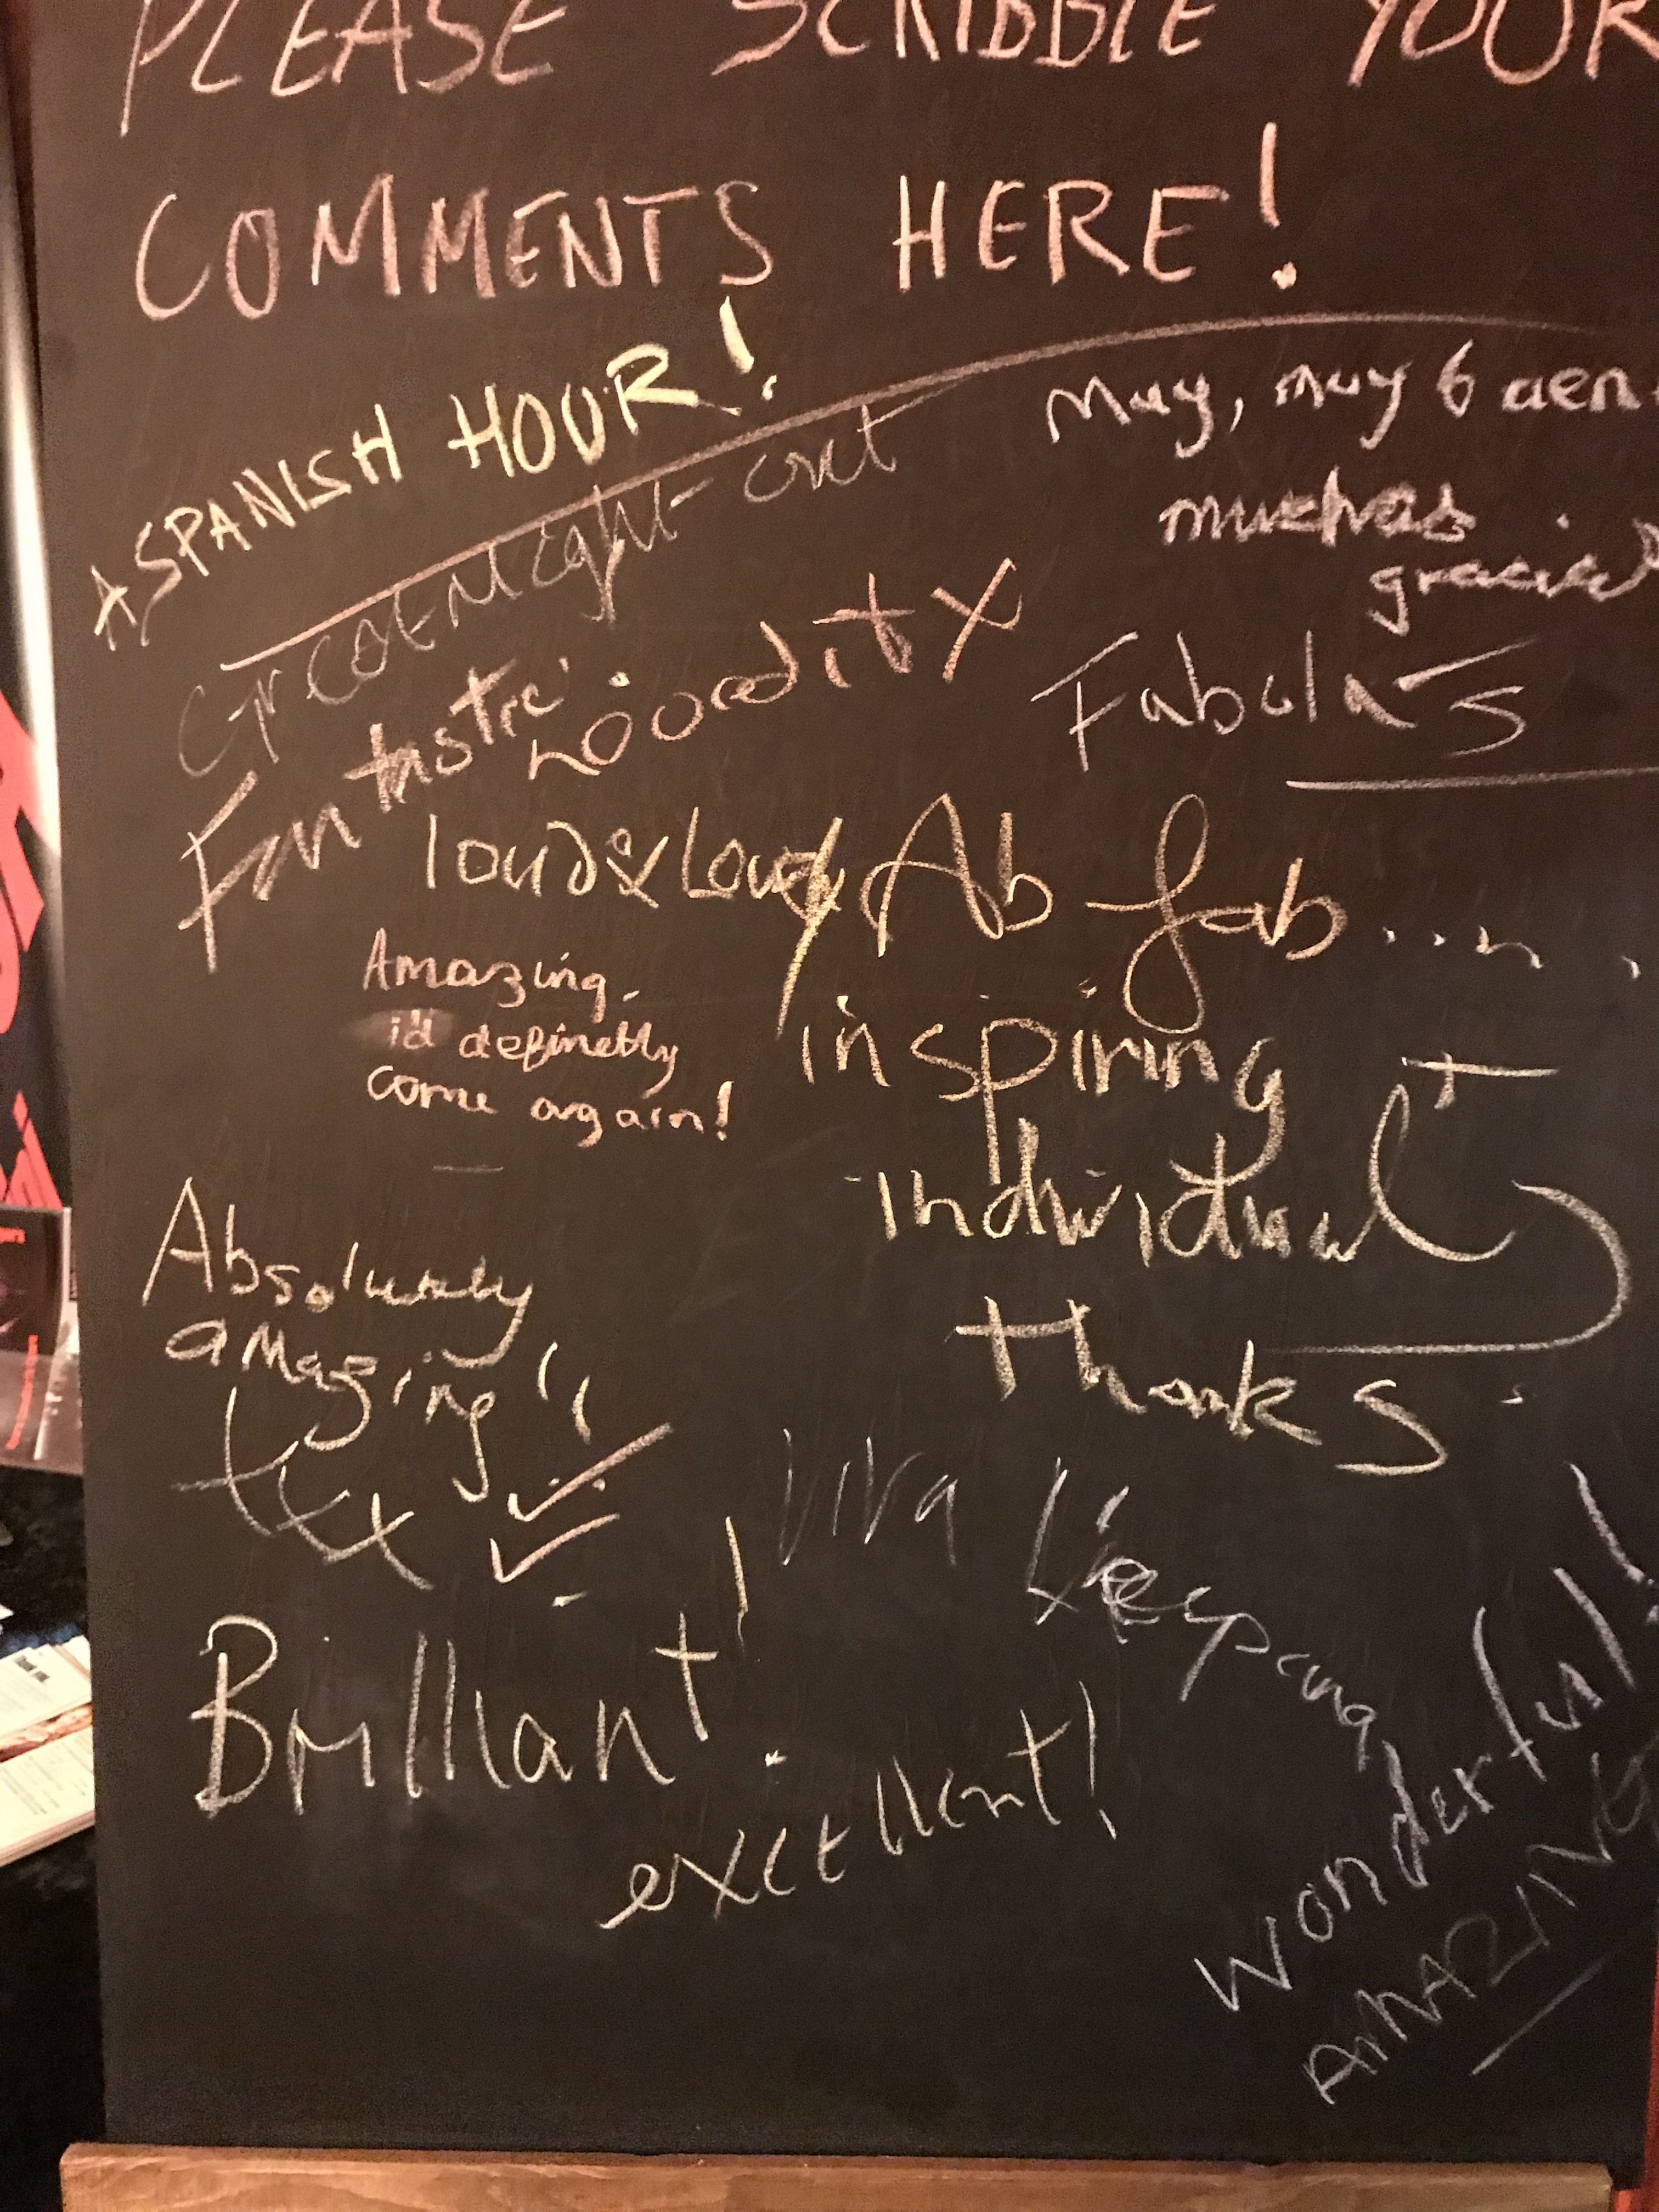 PLEASE SCRIBBLE YOUR
COMMENTS HERE!
A SPANISH HOUR!
Great Night-out
Muy, muy buen
muchas
gracias
Fantastic
Fabulas
loud & Lovely
Ab fab...
Amazing.
id definetly
come again!
inspiring
individual
thanks
Absolutely
amazing!!
xxx
Viva L'espang
Brilliant!
excellent!
wonderful!
AMAZING